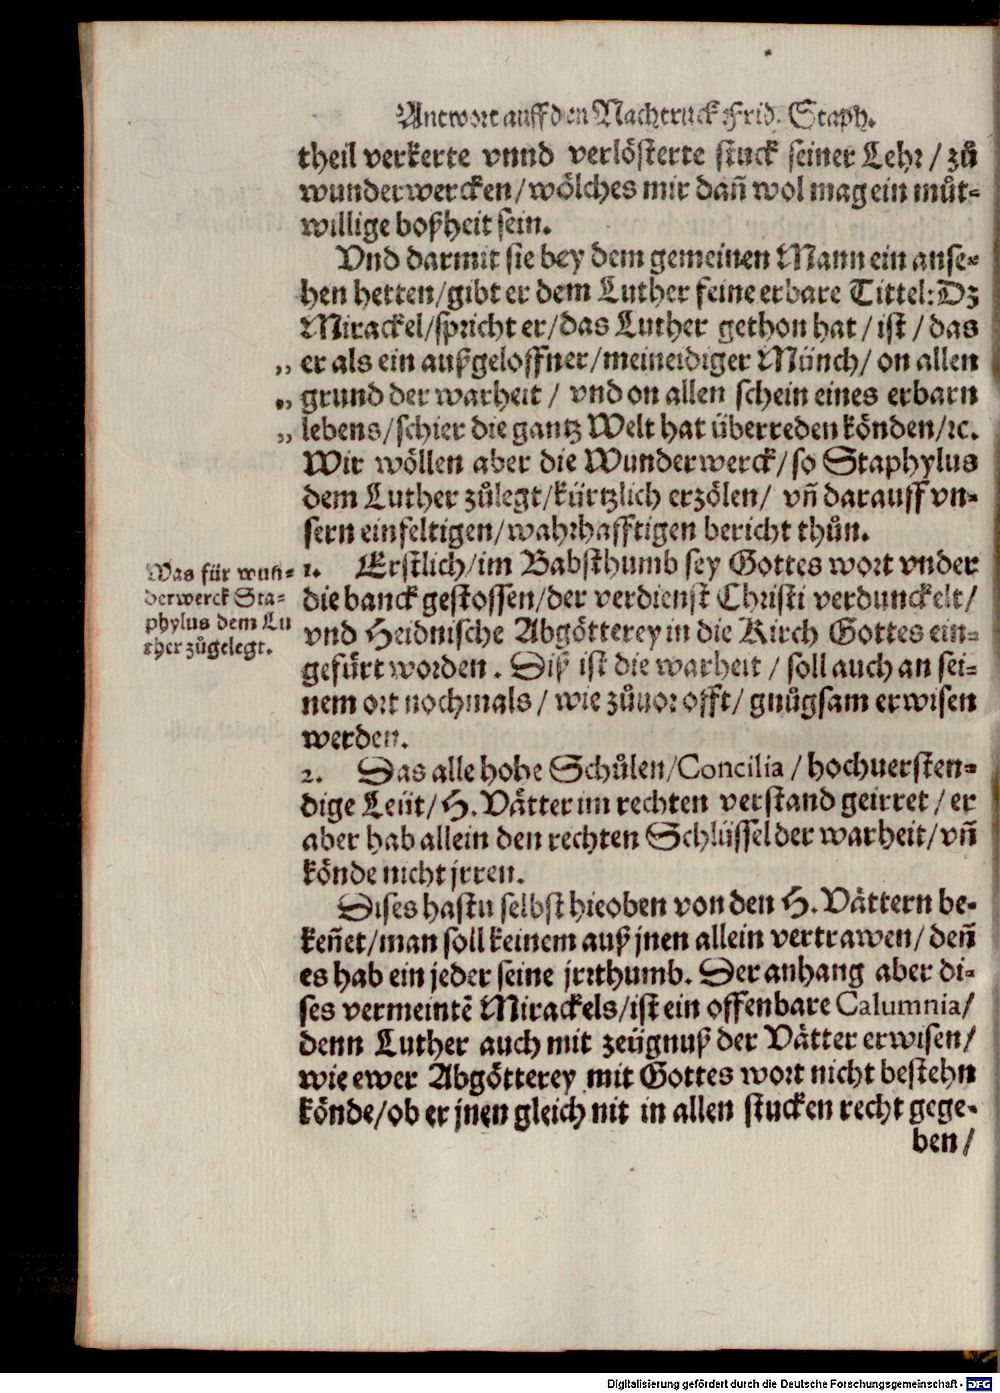 Antwort auff den Nachtruck Frid. Staph.
theil verkerte vnnd verlösterte stuck seiner Lehr / zů
wunderwercken / wölches mir dañ wol mag ein můt-
willige boßheit sein.
Vnd darmit sie bey dem gemeinen Mann ein anse-
hen hetten / gibt er dem Luther feine erbare Tittel: Dz
Mirackel / spricht er / das Luther gethon hat / ist / das
„ er als ein außgeloffner / meineidiger Münch / on allen
„ grund der warheit / vnd on allen schein eines erbarn
„ lebens / schier die gantz Welt hat überreden könden / ꝛc.
Wir wöllen aber die Wunderwerck / so Staphylus
dem Luther zůlegt / kürtzlich erzölen / vñ darauff vn-
sern einfeltigen / wahrhafftigen bericht thůn.
Was für wuñ-
derwerck Sta-
phylus dem Lu
ther zůgelegt.
1. Erstlich / im Babsthumb sey Gottes wort vnder
die banck gestossen / der verdienst Christi verdunckelt /
vnd Heidnische Abgötterey in die Kirch Gottes ein-
gefürt worden. Diß ist die warheit / soll auch an sei-
nem ort nochmals / wie zůuor offt / gnůgsam erwisen
werden.
2. Das alle hohe Schůlen / Concilia / hochuersten-
dige Leüt / H. Vätter im rechten verstand geirret / er
aber hab allein den rechten Schlüssel der warheit / vñ
könde nicht jrren.
Dises hastu selbst hieoben von den H. Vättern be-
keñet / man soll keinem auß jnen allein vertrawen / deñ
es hab ein jeder seine jrrthumb. Der anhang aber di-
ses vermeintē Mirackels / ist ein offenbare Calumnia /
denn Luther auch mit zeügnuß der Vätter erwisen /
wie ewer Abgötterey mit Gottes wort nicht bestehn
könde / ob er jnen gleich nit in allen stucken recht gege-
ben /
Digitalisierung gefördert durch die Deutsche Forschungsgemeinschaft - DFG